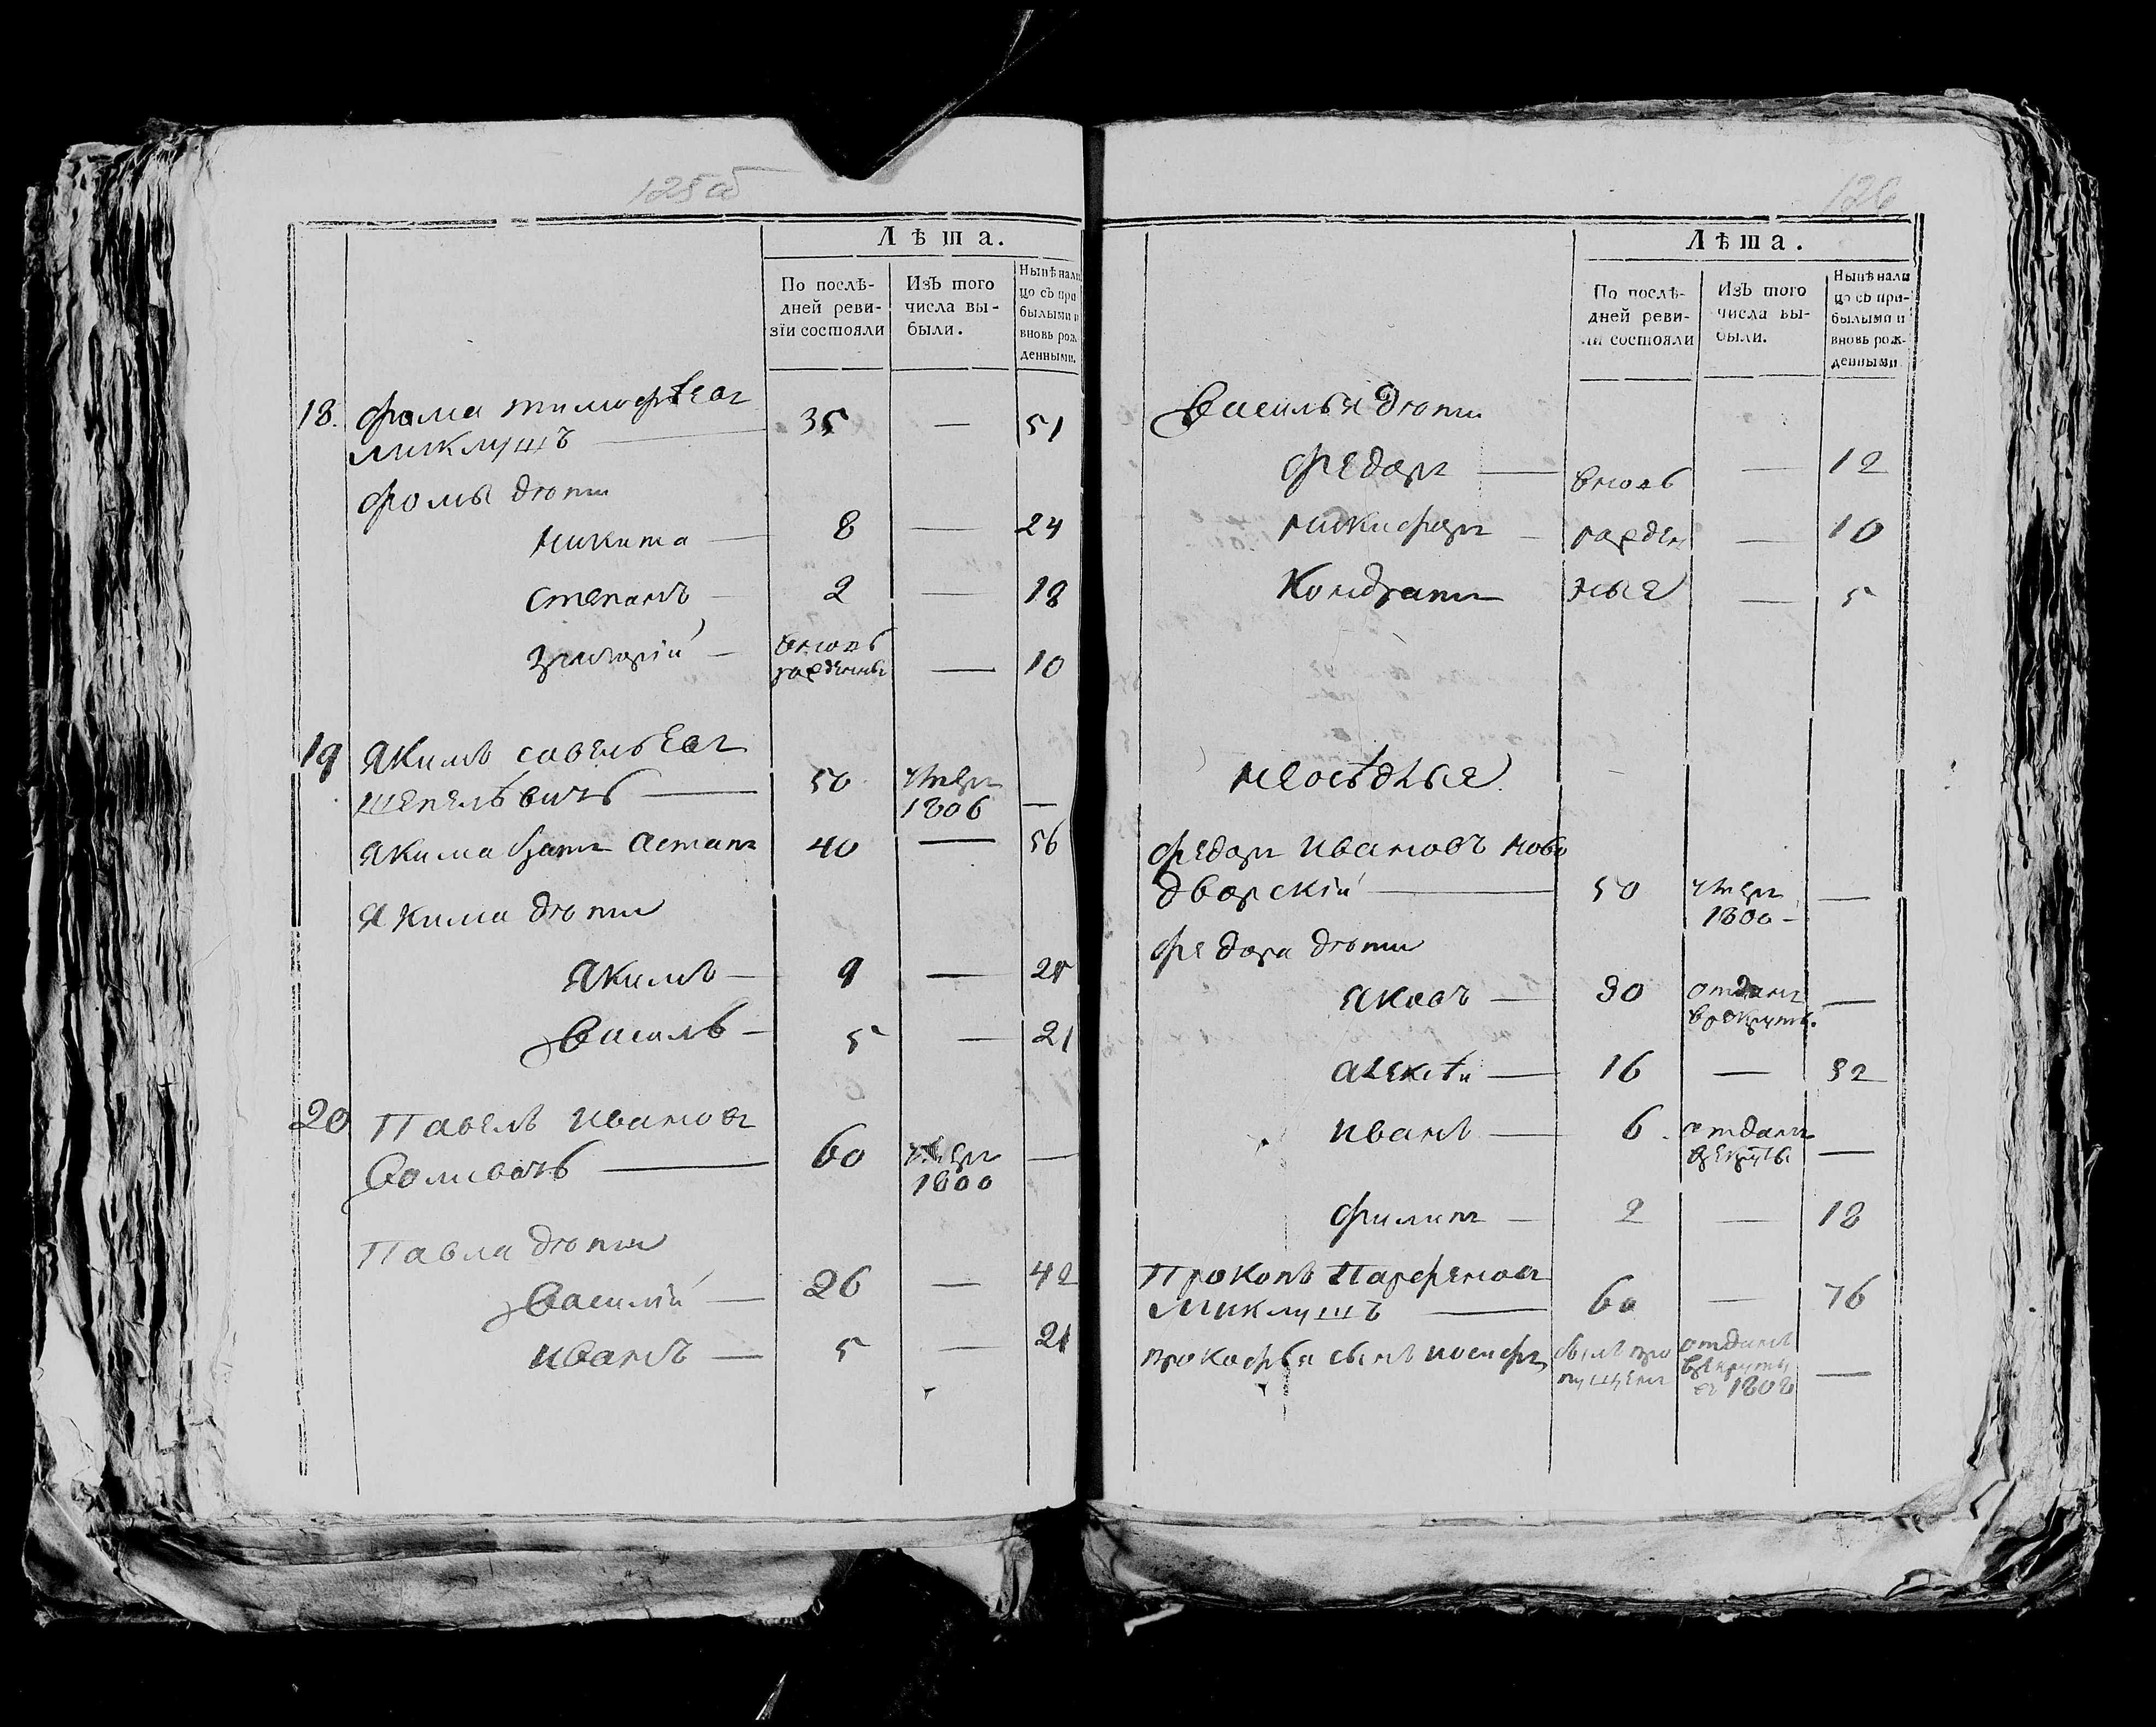 125об
Лѣта.
По послѣ-
дней реви-
зіи состояли
Изъ того
числа вы-
были.
Нынѣ нали
цо съ при
былыми и
вновь рож
денными.
18. Фома Тимофѣевъ
Миклушъ — 35 — 51
Фомы дѣти
Никита — 8 — 24
Степанъ — 2 — 18
Григорій — вновь
рожденны — 10
19 Якимъ Савельевъ
Шепелѣвичъ — 50 умеръ
1806 —
Якима братъ Астапъ 40 — 56
Якима дѣти
Якимъ — 9 — 25
Василь — 5 — 21
20 Павелъ Ивановъ
60 умеръ
1800 —
Павла дѣти
Василій — 26 — 42
Иванъ — 5 — 21
126
Лѣта.
По послѣ-
дней реви-
зіи состояли
Изъ того
числа вы-
были.
Нынѣ нали
цо съ при-
былыми и
вновь рож-
денными
Василья дѣти
Федоръ — вновь — 12
Никифоръ — рожден — 10
Кондратъ ные — 5
Неосѣдлые.
Федоръ Ивановъ Ново
дворскій — 50 умеръ
1800 — —
Федора дѣти
Яковъ — 30 отданъ
в рекруты. —
Алексѣй — 16 — 32
Иванъ — 6 отданъ
—
Филипъ — 2 — 18
Прокопъ Парфеновъ
Миклушъ — 60 — 76
Прокофья сынъ Иосифъ былъ про
пущенъ отданъ
в рекруты
въ 1808 —